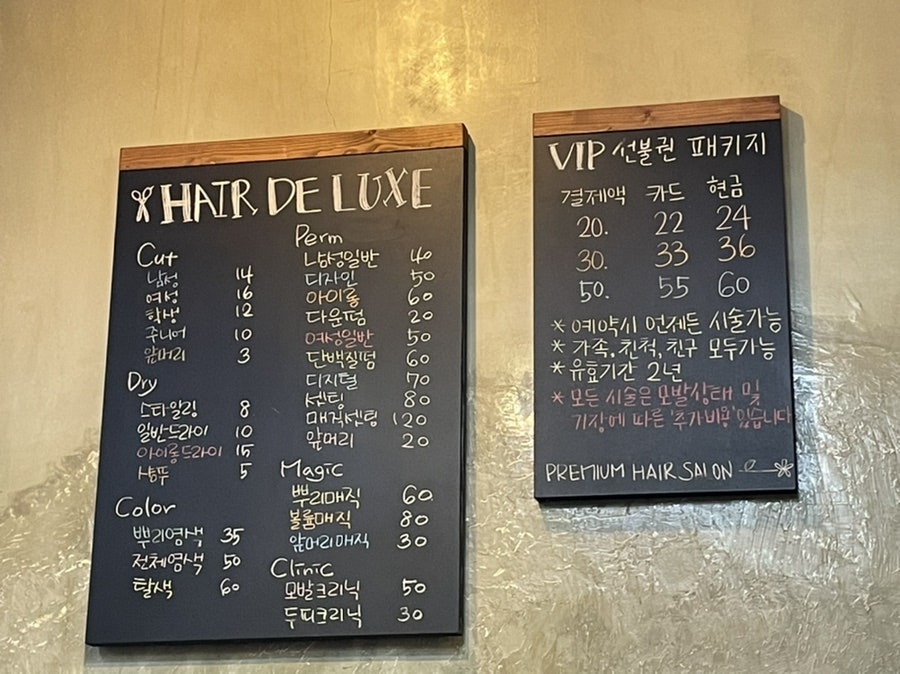 HAIR DE LUXE
Cut
남성 14
여성 16
학생 12
주니어 10
앞머리 3
Dry
스타일링 8
일반드라이 10
아이롱드라이 15
샴푸 5
Color
뿌리염색 35
전체염색 50
탈색 60
Perm
남성일반 40
디자인 50
아이롱 60
다운펌 20
여성일반 50
단백질펌 60
디지털 70
셋팅 80
매직셋팅 120
앞머리 20
Magic
뿌리매직 60
볼륨매직 80
앞머리매직 30
Clinic
모발크리닉 50
두피크리닉 30
VIP 선불권 패키지
결제액 카드 현금
20. 22 24
30. 33 36
50. 55 60
* 예약시 언제든 시술가능
* 가족, 친척, 친구 모두가능
* 유효기간 2년
* 모든 시술은 모발상태 및
기장에 따른 '추가비용'있습니다
PREMIUM HAIR SALON